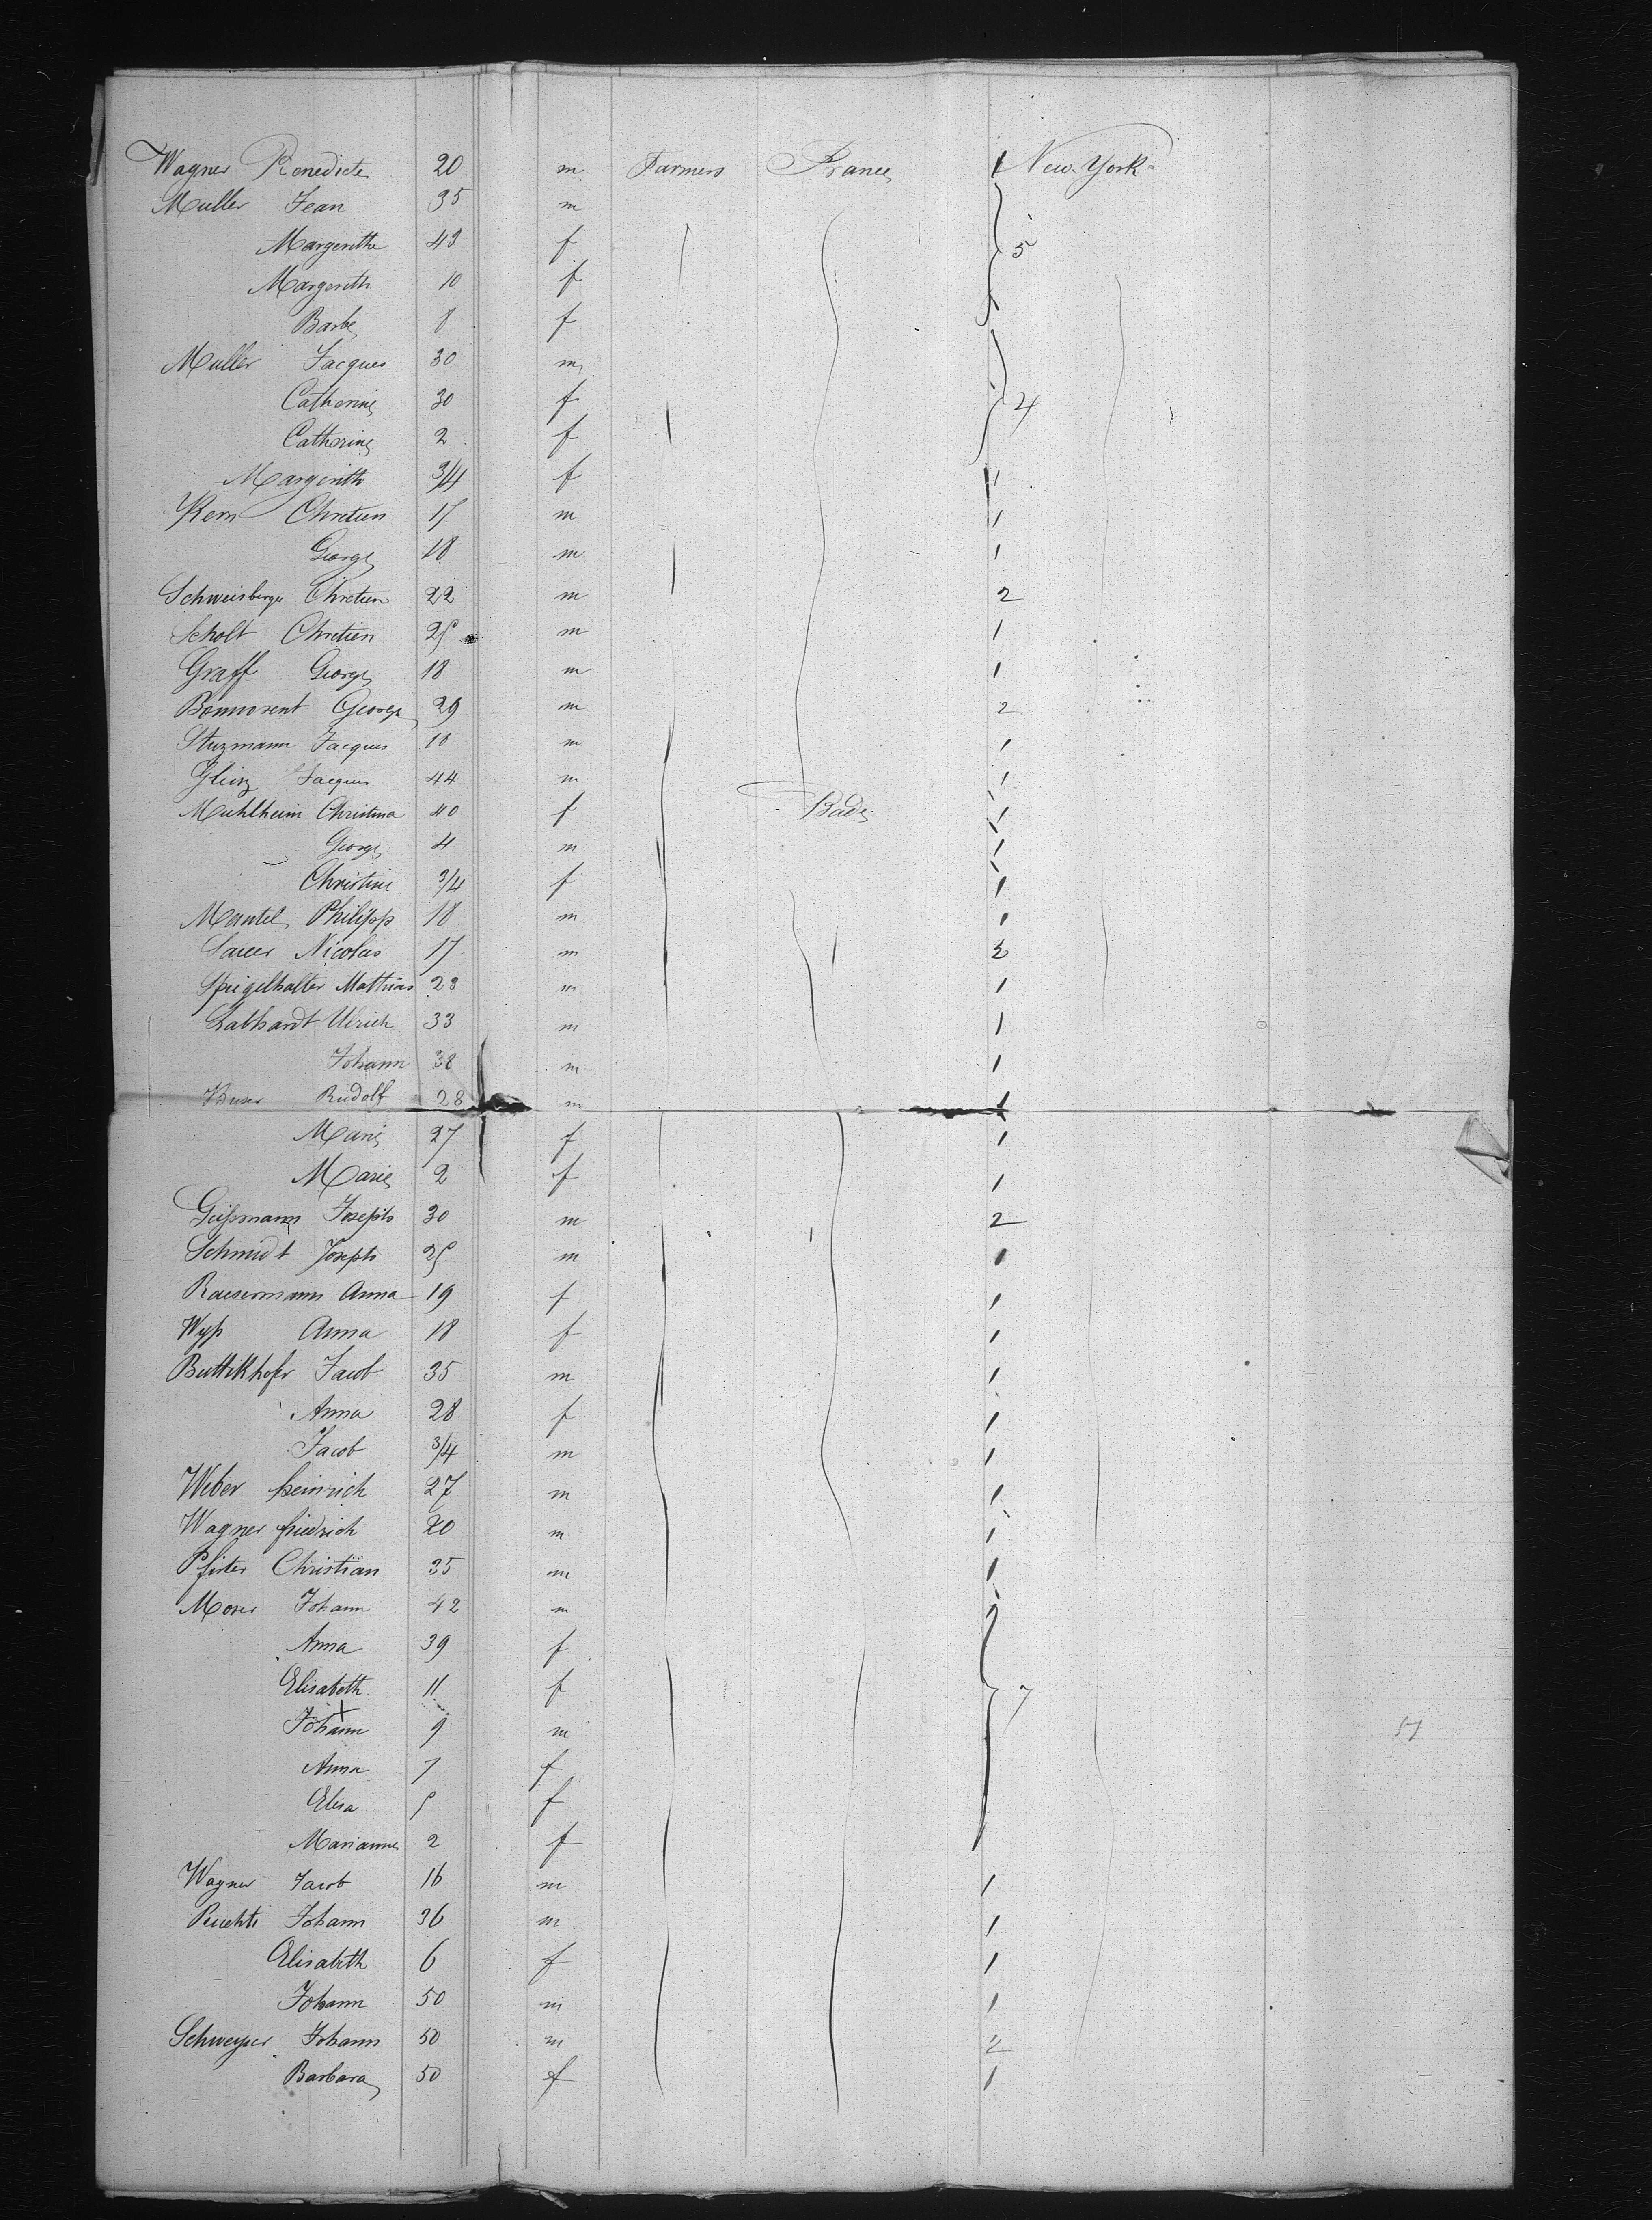 Wagner Benedicte 20 m Farmers France 1 New York
Muller Jean 35 m
Margerithe 43 f 5
Margerith 10 f
Barbe 8 f
Muller Jacques 30 m
Catherine 30 f 4
Catherine 2 f
Margerith 3/4 f 1
Kern Chretien 17 m 1
George 18 m 1
Schweisberger Chretien 22 m 2
Scholt Chretien 25 m 1
Graff George 18 m 1
Bonnorent George 29 m 2
Stuzmann Jacques 18 m 1
Jacques 44 m 1
Muhlheim Christina 40 f Bade 1
George 4 m 1
Christine 3/4 f 1
Mantel Philipp 18 m 1
Nicolas 17 m 2
Spiegelhalter Mathias 28 m 1
Labhardt Ulrich 33 m 1
Johann 38 m 1
Buser Rudolf 28 m 1
Marie 27 f 1
Marie 2 f 1
Geissmann Joseph 30 m 2
Schmidt Joseph 25 m 1
Anna 19 f 1
Wyss Anna 18 f 1
Buttikhofer Jacob 35 m 1
Anna 28 f 1
Jacob 3/4 m 1
Weber heinrich 27 m 1
Wagner friedrich 20 m 1
Pfister Christian 35 m 1
Moser Johann 42 m
Anna 39 f
Elisabeth 11 f 7
Johann 9 m 57
Anna 7 f
Elisa 5 f
Marianne 2 f
Wagner Jacob 16 m 1
Ruchti Johann 36 m 1
Elisabeth 6 f 1
Johann 50 m 1
Johann 50 m 2
Barbara 50 f 1